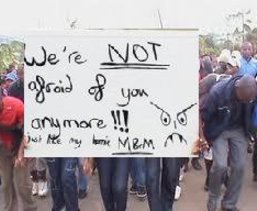 We're NOT
afraid of you
anymore !!!
just like my homie M&M